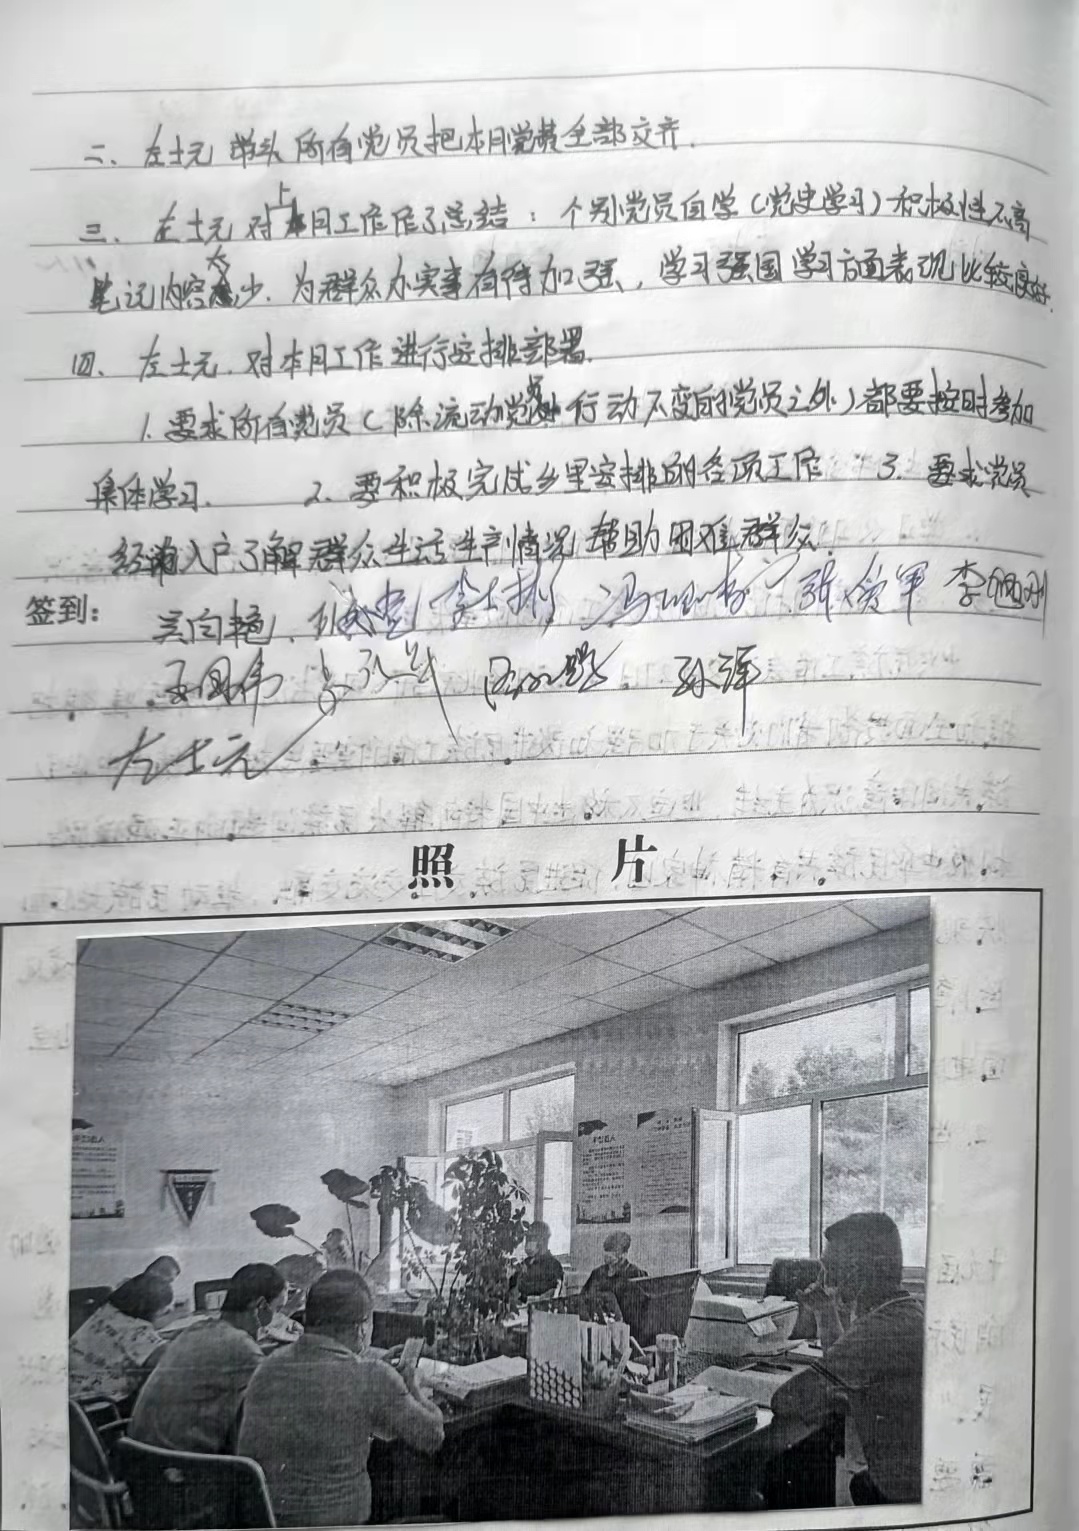 二、左士元 带头 所有党员把本月党费全部交齐.
三、左士元 对上月工作作了总结：个别党员自学(党史学习)积极性不高
笔记内容太少. 为群众办实事有待加强, 学习强国学习方面表现比较良好.
四、左士元. 对本月工作进行安排部署.
1. 要求所有党员(除流动党员 行动不变的党员之外)都要按时参加
集体学习. 2. 要积极完成乡里安排的各项工作 3. 要求党员
经常入户了解群众生活生产情况, 帮助困难群众.
签到: 吴向艳. 张俊军 李旭刚
王国伟 孙泽
左士元
照 片